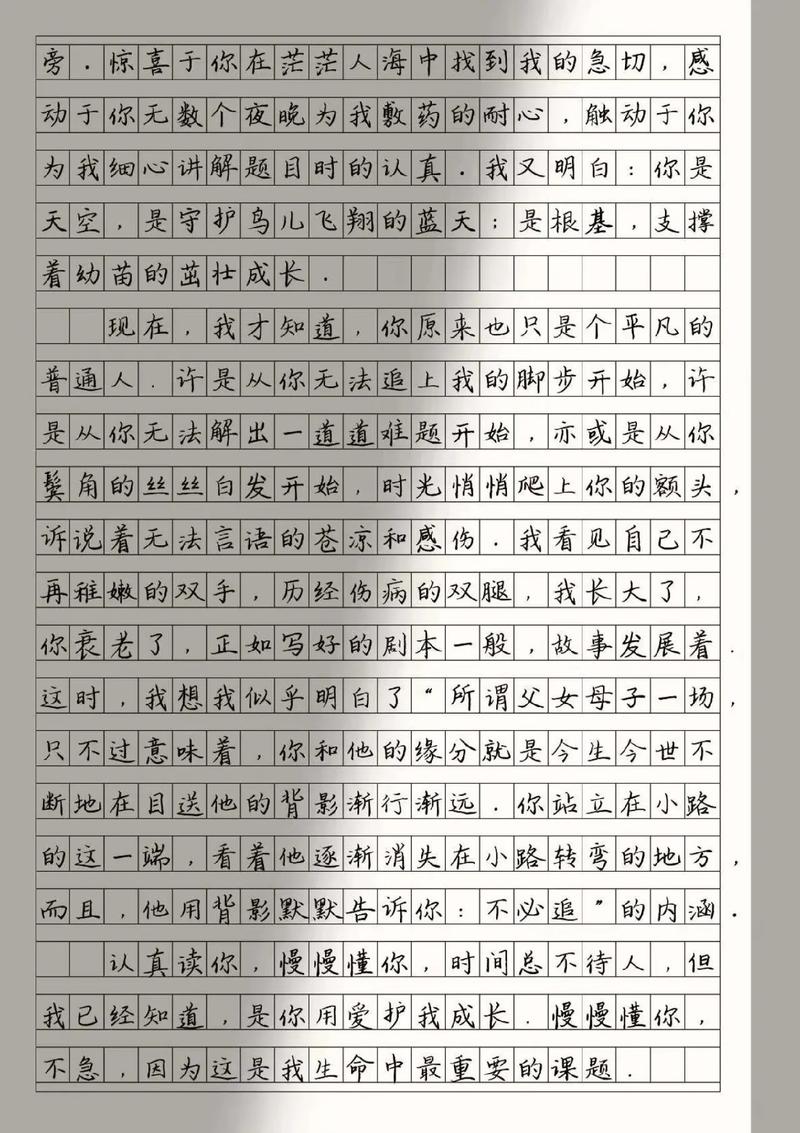 旁.惊喜于你在茫茫人海中找到我的急切,感
动于你无数个夜晚为我敷药的耐心,触动于你
为我细心讲解题目时的认真.我又明白:你是
天空,是守护鸟儿飞翔的蓝天;是根基,支撑
着幼苗的茁壮成长.
现在,我才知道,你原来也只是个平凡的
普通人.许是从你无法追上我的脚步开始,许
是从你无法解出一道道难题开始,亦或是从你
鬓角的丝丝白发开始,时光悄悄爬上你的额头,
诉说着无法言语的苍凉和感伤.我看见自己不
再稚嫩的双手,历经伤病的双腿,我长大了,
你衰老了,正如写好的剧本一般,故事发展着.
这时,我想我似乎明白了“所谓父女母子一场,
只不过意味着,你和他的缘分就是今生今世不
断地在目送他的背影渐行渐远.你站立在小路
的这一端,看着他逐渐消失在小路转弯的地方,
而且,他用背影默默告诉你:不必追”的内涵.
认真读你,慢慢懂你,时间总不待人,但
我已经知道,是你用爱护我成长.慢慢懂你,
不急,因为这是我生命中最重要的课题.